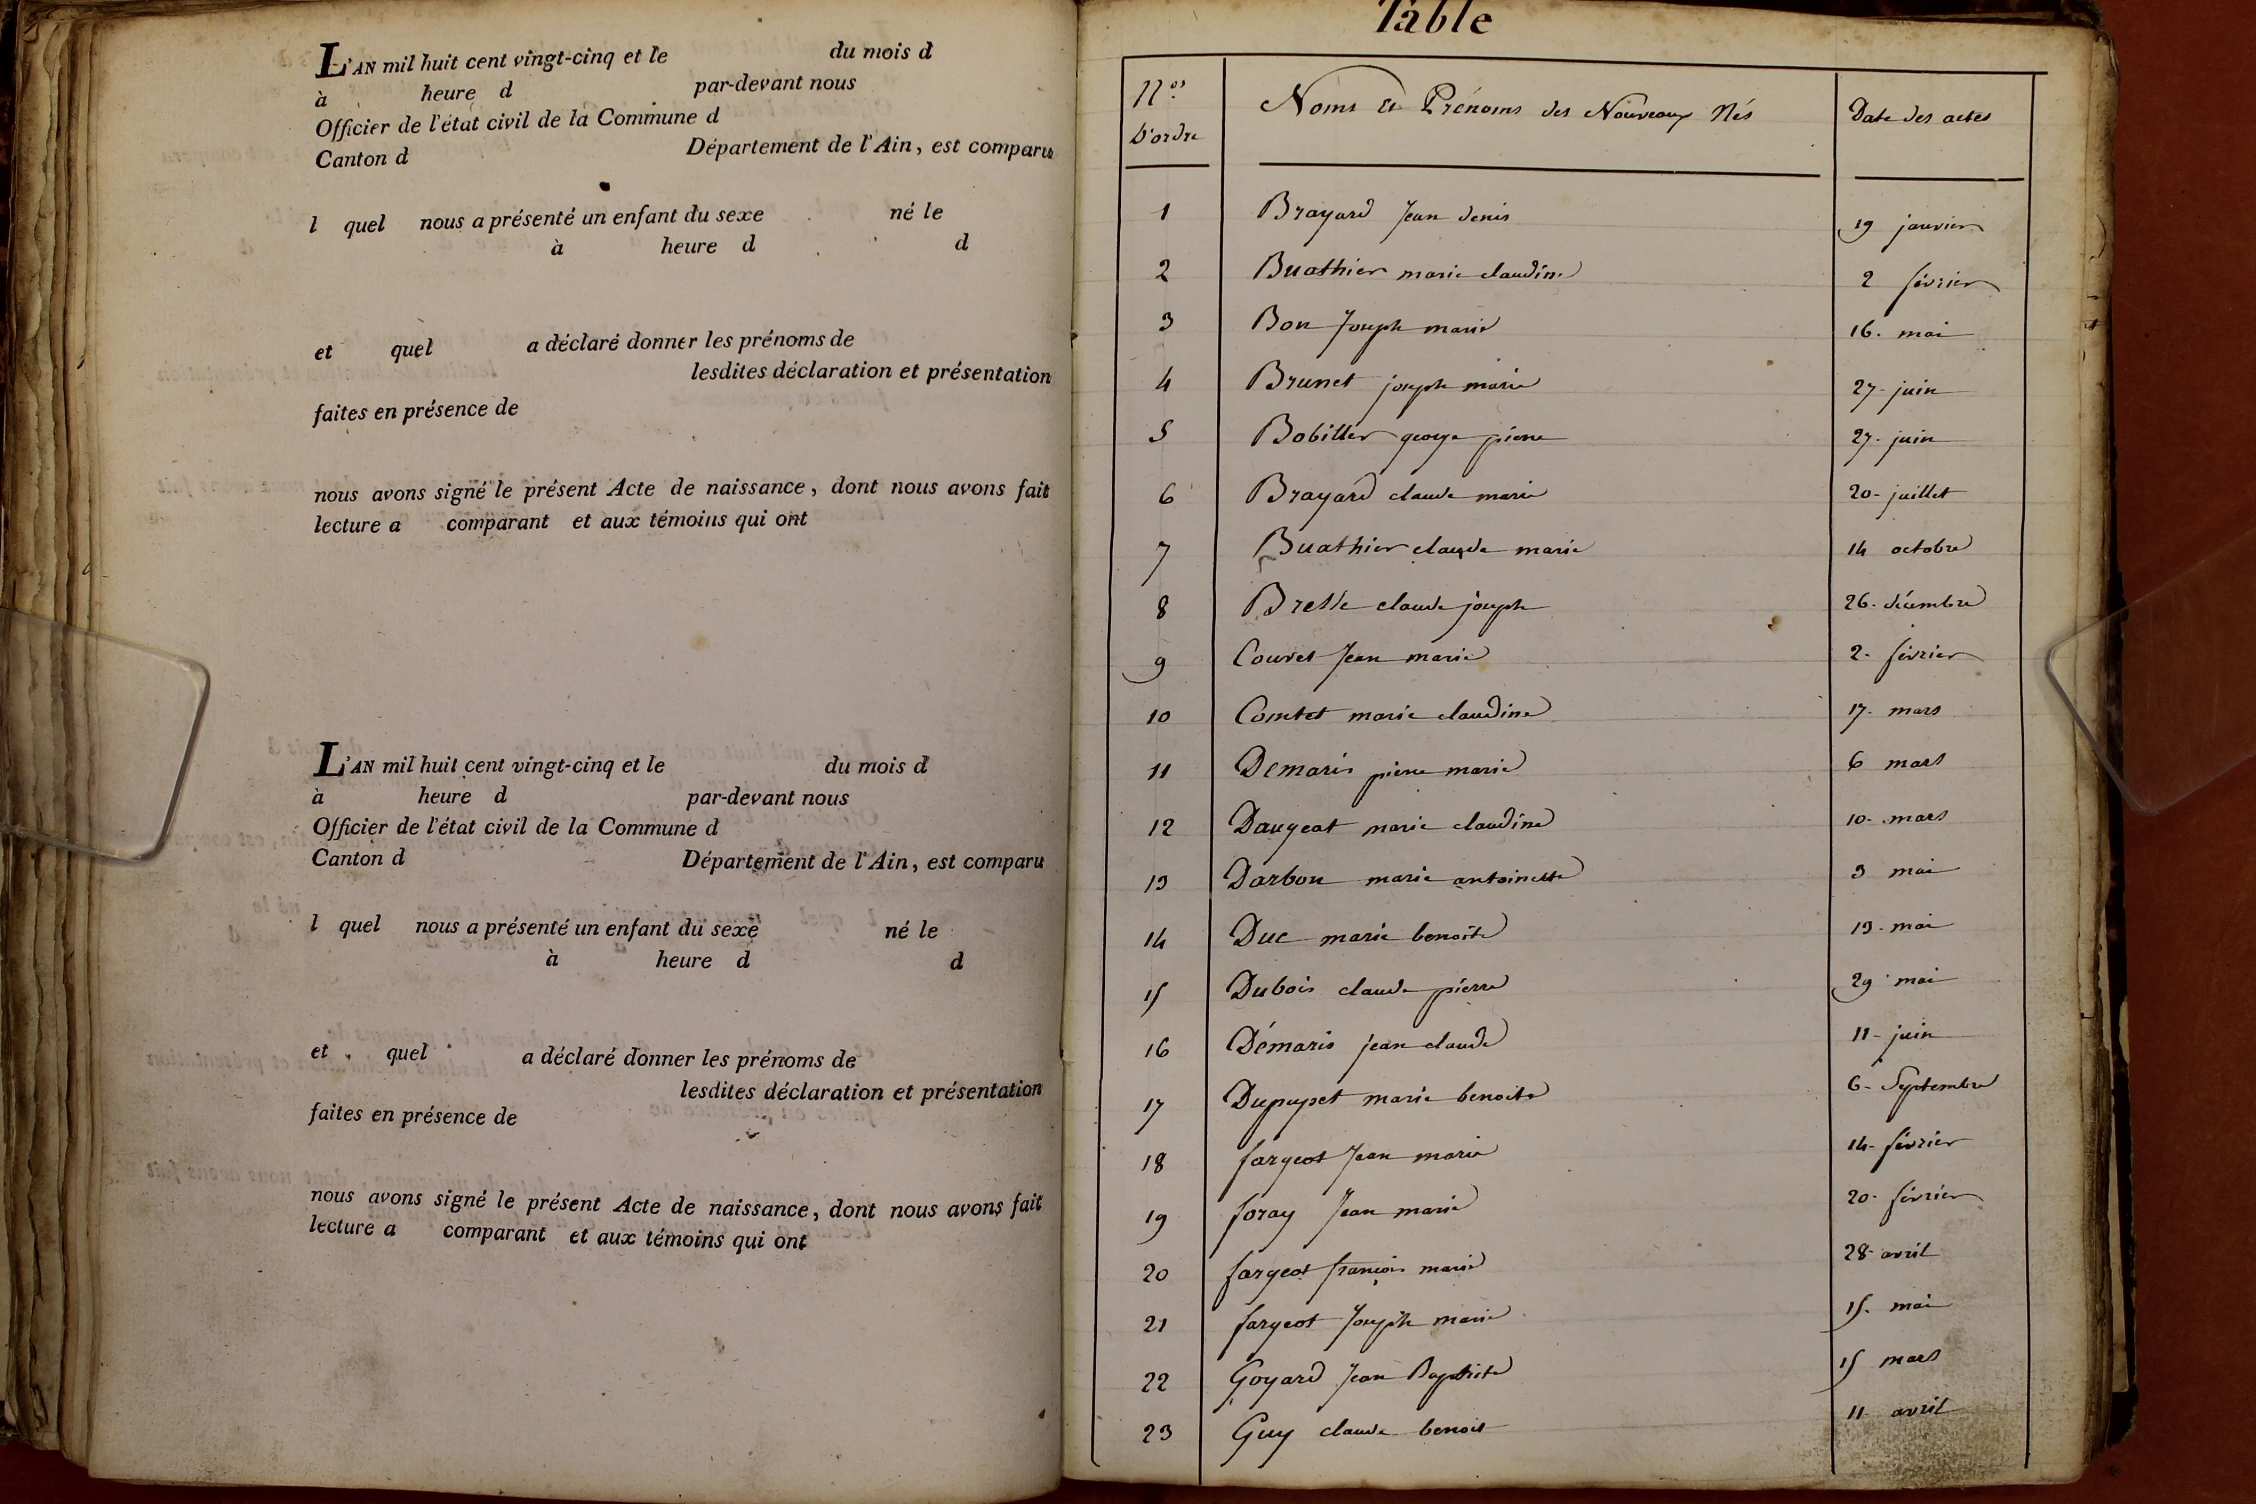 L'AN mil huit cent vingt-cinq et le du mois d
à heure d par-devant nous
Officier de l'état civil de la Commune d
Canton d Département de l'Ain, est comparu
l quel nous a présenté un enfant du sexe né le
à heure d d
et quel a déclaré donner les prénoms de
lesdites déclaration et présentation
faites en présence de
nous avons signé le présent Acte de naissance, dont nous avons fait
lecture a comparant et aux témoins qui ont
L'AN mil huit cent vingt-cinq et le du mois d
à heure d par-devant nous
Officier de l'état civil de la Commune d
Canton d Département de l'Ain, est comparu
l quel nous a présenté un enfant du sexe né le
à heure d d
et quel a déclaré donner les prénoms de
lesdites déclaration et présentation
faites en présence de
nous avons signé le présent Acte de naissance, dont nous avons fait
lecture a comparant et aux témoins qui ont
Table
Nos D'ordre Noms Et Prénoms des Nouveaux Nés Date des actes
1 Brayard Jean denis 19 janvier
2 Buathier marie claudine 2 février
3 Bon Joseph marie 16. mai
4 Brunet joseph marie 27- juin
5 Bobillier george pierre 27- juin
6 Brayard claude marie 20- juillet
7 Buathier claude marie 14 octobre
8 Bresse claude joseph 26- décembre
9 Couvet Jean marie 2- février
10 Comtet marie claudine 17- mars
11 Demaris pierre marie 6 mars
12 Daugeat marie claudine 10- mars
13 Darbon marie antoinette 3 mai
14 Duc marie benoite 13- mai
15 Dubois claude pierre 29 mai
16 Démaris jean claude 11- juin
17 Dupupet marie benoite 6- Septembre
18 fargeot Jean marie 14- février
19 foray Jean marie 20- février
20 fargeot françois marie 28- avril
21 fargeot Joseph marie 15. mai
22 Goyard Jean Baptiste 15 mars
23 Guy claude benoit 11 avril